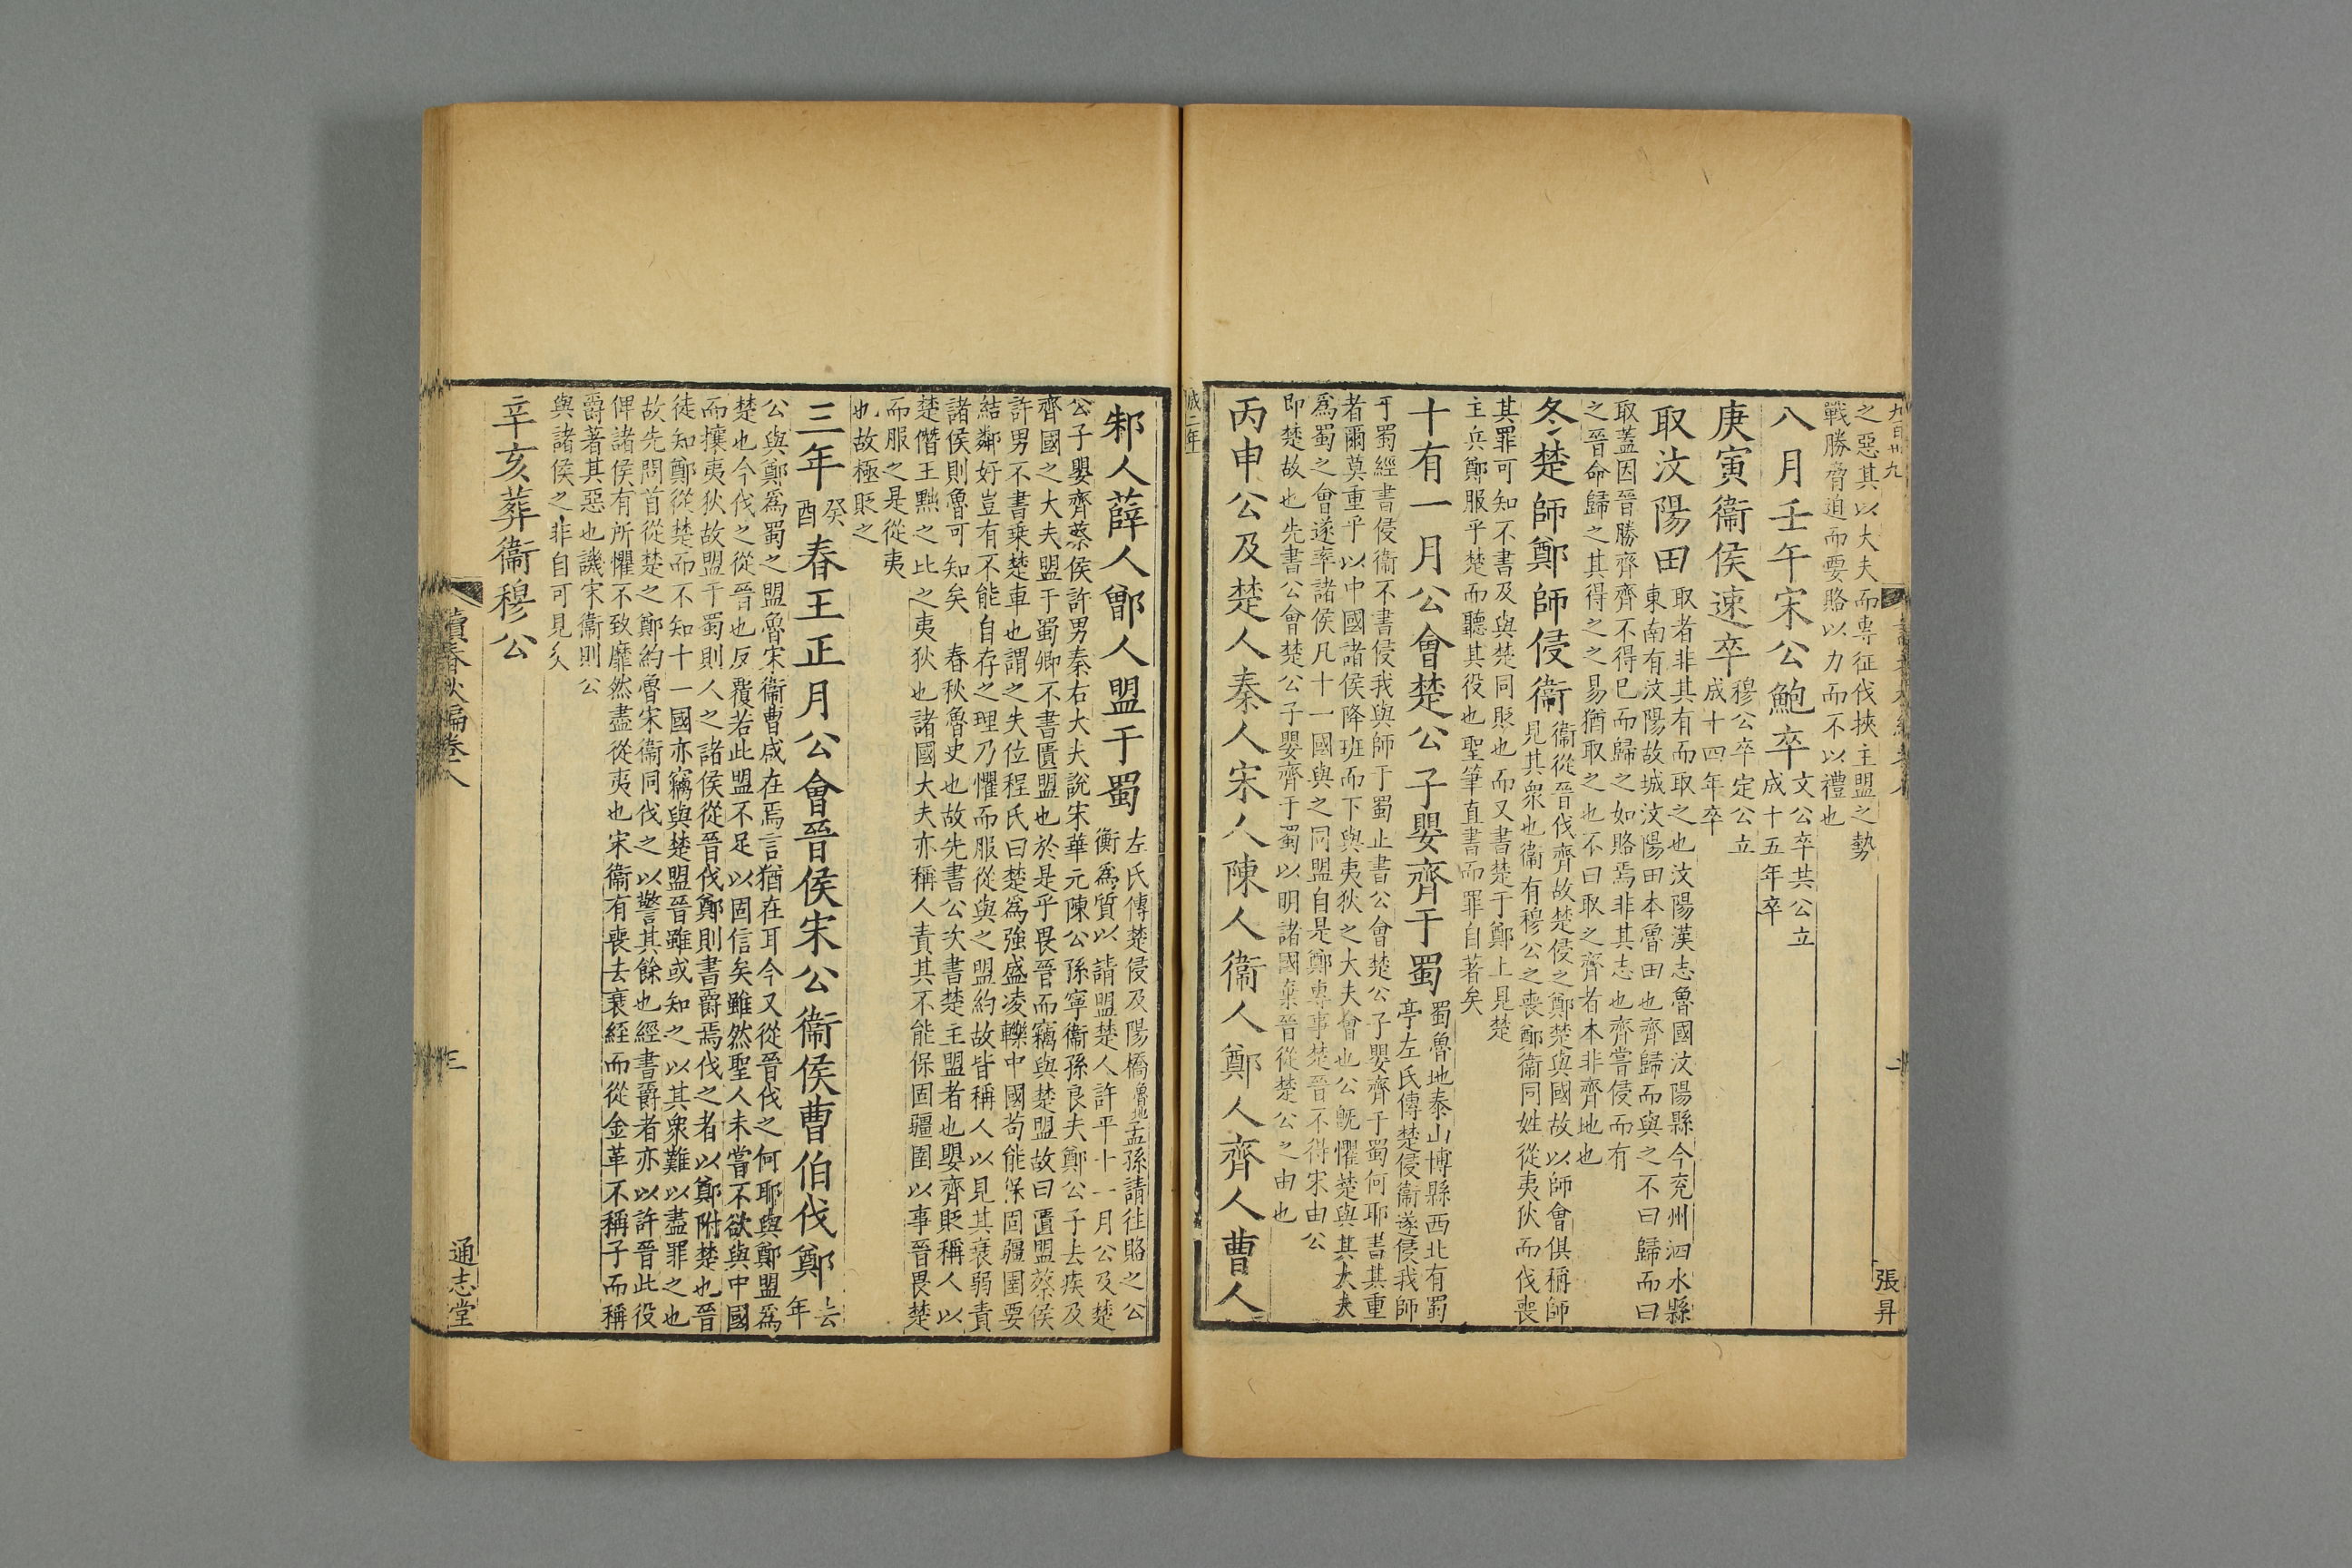 之惡其以大夫而專征伐挾主盟之勢
戰勝脅迫而要賂以力而不以禮也
八月壬午宋公鮑卒
文公卒共公立
成十五年卒
庚寅衞侯速卒
穆公卒定公立
成十四年卒
取汶陽田
取者非其有而取之也汶陽漢志魯國汶陽縣今兖州泗水縣
東南有汶陽故城汶陽田本魯田也齊歸而與之不曰歸而曰
取蓋因晉勝齊齊不得已而歸之如賂焉非其志也齊嘗侵而有
之晉命歸之其得之之易猶取之也不曰取之齊者本非齊地也
冬楚師鄭師侵衞
衞從晉伐齊故楚侵之鄭楚與國故以師會俱稱師
見其衆也衞有穆公之喪鄭衞同姓從夷狄而伐喪
其罪可知不書及與楚同貶也而又書楚于鄭上見楚
主兵鄭服乎楚而聽其役也聖筆直書而罪自著矣
十有一月公會楚公子嬰齊于蜀
蜀魯地泰山博縣西北有蜀
亭左氏傳楚侵衞遂侵我師
于蜀經書侵衞不書侵我與師于蜀止書公會楚公子嬰齊于蜀何耶書其重
者爾莫重乎以中國諸侯降班而下與夷狄之大夫會也公旣懼楚與其大夫
爲蜀之會遂率諸侯凡十一國與之同盟自是鄭專事楚晉不得宋由公
即楚故也先書公會楚公子嬰齊于蜀以明諸國棄晉從楚公之由也
丙申公及楚人秦人宋人陳人衞人鄭人齊人曹人
成二年
張昇
邾人薛人鄫人盟于蜀
左氏傳楚侵及陽橋魯地孟孫請往賂之公
衡爲質以請盟楚人許平十一月公及楚
公子嬰齊蔡侯許男秦右大夫說宋華元陳公孫寧衞孫良夫鄭公子去疾及
齊國之大夫盟于蜀卿不書匱盟也於是乎畏晉而竊與楚盟故曰匱盟蔡侯
許男不書乗楚車也謂之失位程氏曰楚爲強盛凌轢中國苟能保固疆圉要
結鄰好豈有不能自存之理乃懼而服從與之盟約故皆稱人以見其衰弱責
諸侯則魯可知矣　春秋魯史也故先書公次書楚主盟者也嬰齊貶稱人以
楚僭王黜之比之夷狄也諸國大夫亦稱人責其不能保固疆圉以事晉畏楚
而服之是從夷
也故極貶之
三年癸酉春王正月公會晉侯宋公衞侯曹伯伐鄭
去
年
公與鄭爲蜀之盟魯宋衞曹咸在焉言猶在耳今又從晉伐之何耶與鄭盟爲
楚也今伐之從晉也反覆若此盟不足以固信矣雖然聖人未嘗不欲與中國
而攘夷狄故盟于蜀則人之諸侯從晉伐鄭則書爵焉伐之者以鄭附楚也晉
徒知鄭從楚而不知十一國亦竊與楚盟晉雖或知之以其衆難以盡罪之也
故先問首從楚之鄭約魯宋衞同伐之以警其餘也經書爵者亦以許晉此役
俾諸侯有所懼不致靡然盡從夷也宋衞有喪去衰絰而從金革不稱子而稱
爵著其惡也譏宋衞則公
與諸侯之非自可見矣
辛亥葬衞穆公
讀春秋編卷八
三
通志堂